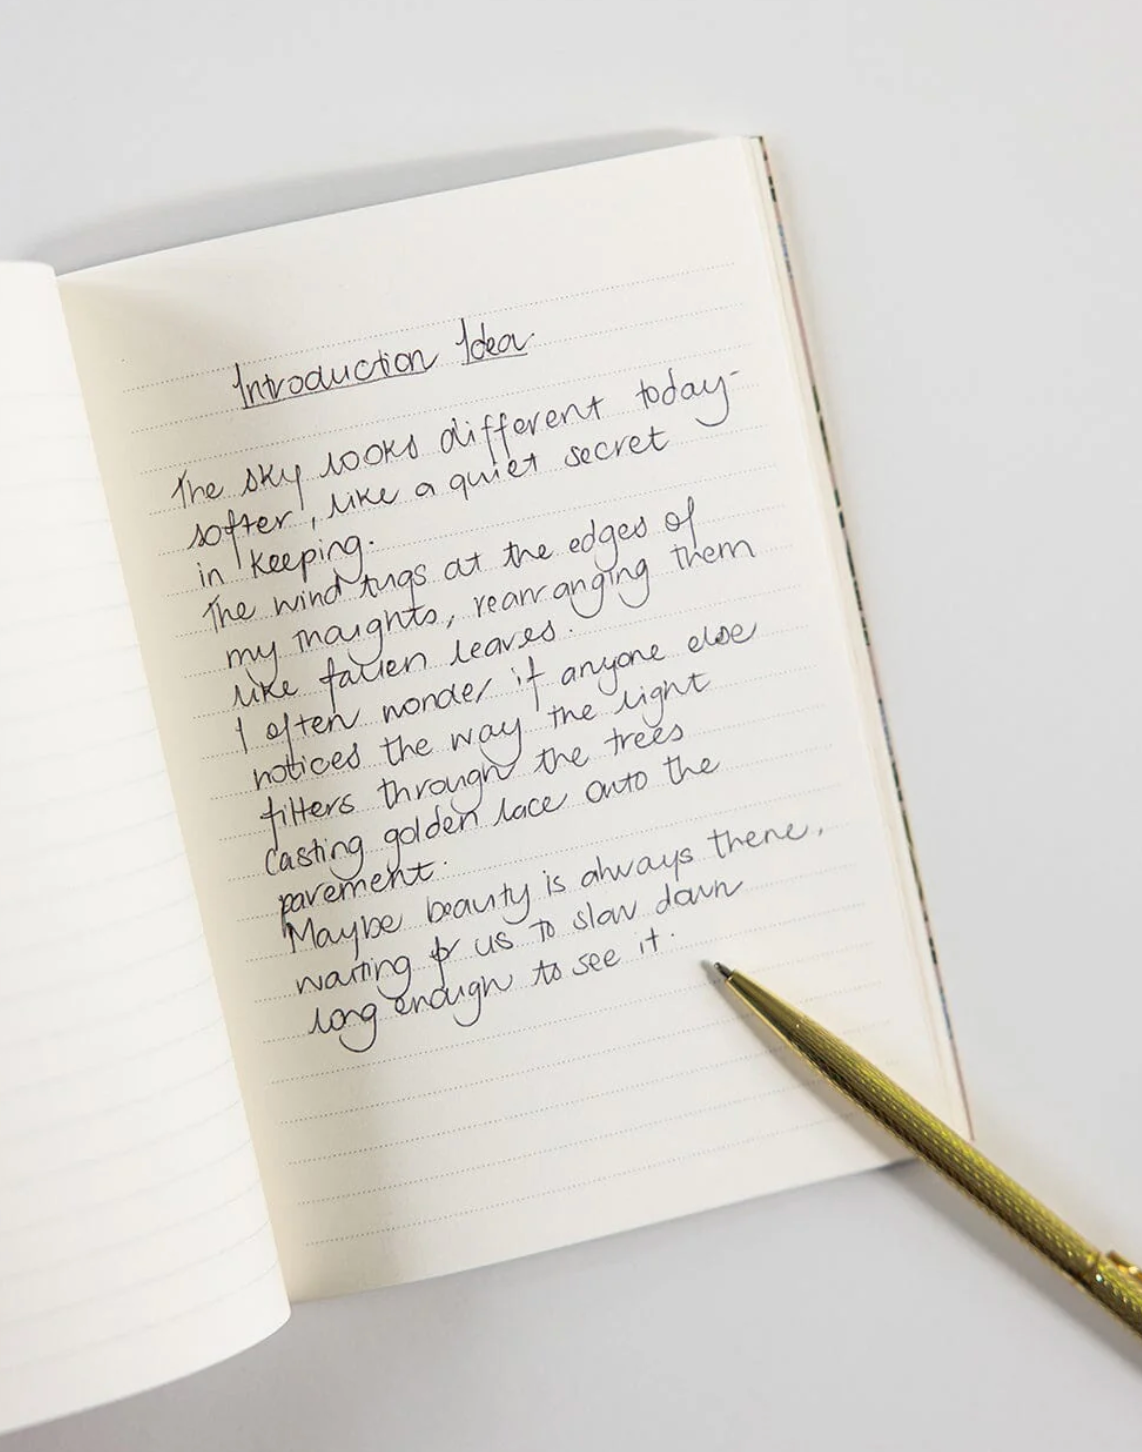 Introduction Idea
The sky looks different today-
softer, like a quiet secret
in keeping.
The wind tugs at the edges of
my thoughts, rearranging them
like fallen leaves.
I often wonder if anyone else
notices the way the light
filters through the trees
casting golden lace onto the
pavement.
Maybe beauty is always there,
waiting for us to slow down
long enough to see it.